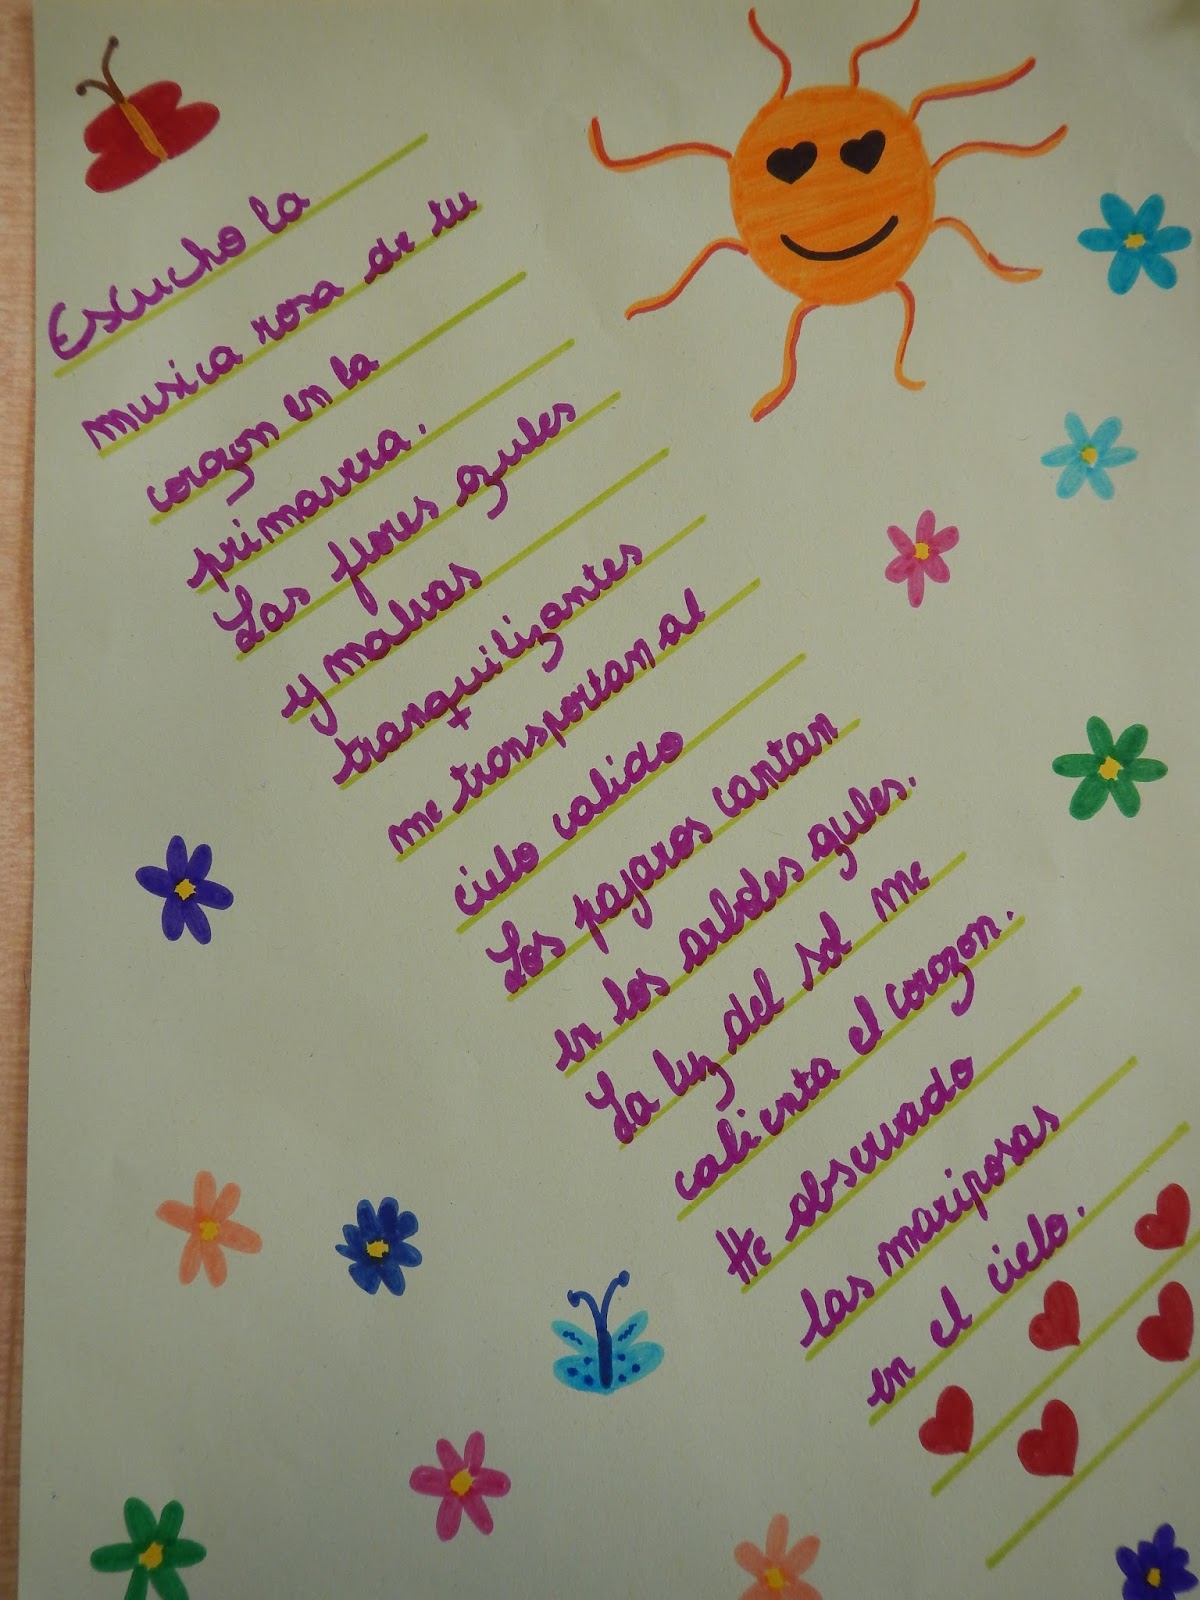 Escucho la
musica rosa de tu
corazon en la
primavera.
Las flores azules
y malvas
tranquilizantes
me transportan al
cielo calido
Los pajaros cantan
en los arboles azules.
La luz del sol me
calienta el corazon.
He observado
las mariposas
en el cielo.